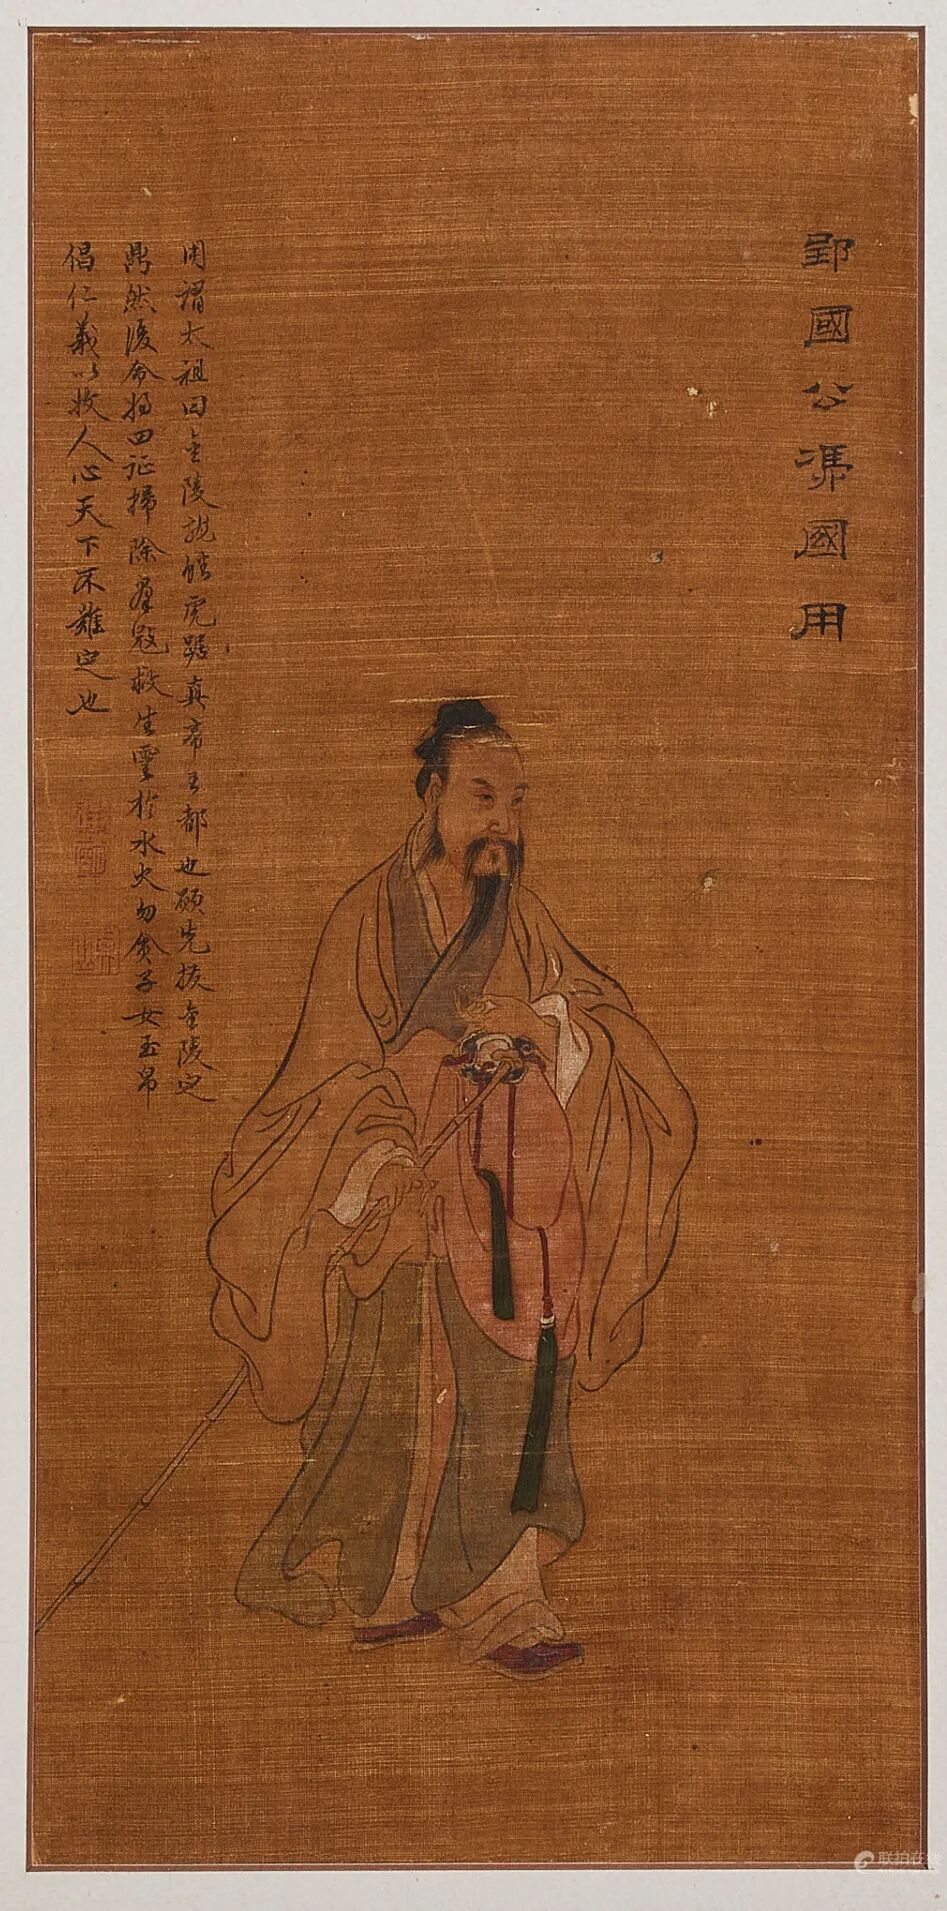 郢國公馮國用
用謂太祖曰金陵龍蟠虎踞真帝王都也願先拔金陵定
鼎然後命將四征掃除群寇救生靈於水火勿貪子女玉帛
倡仁義以收人心天下不難定也
联拍在线